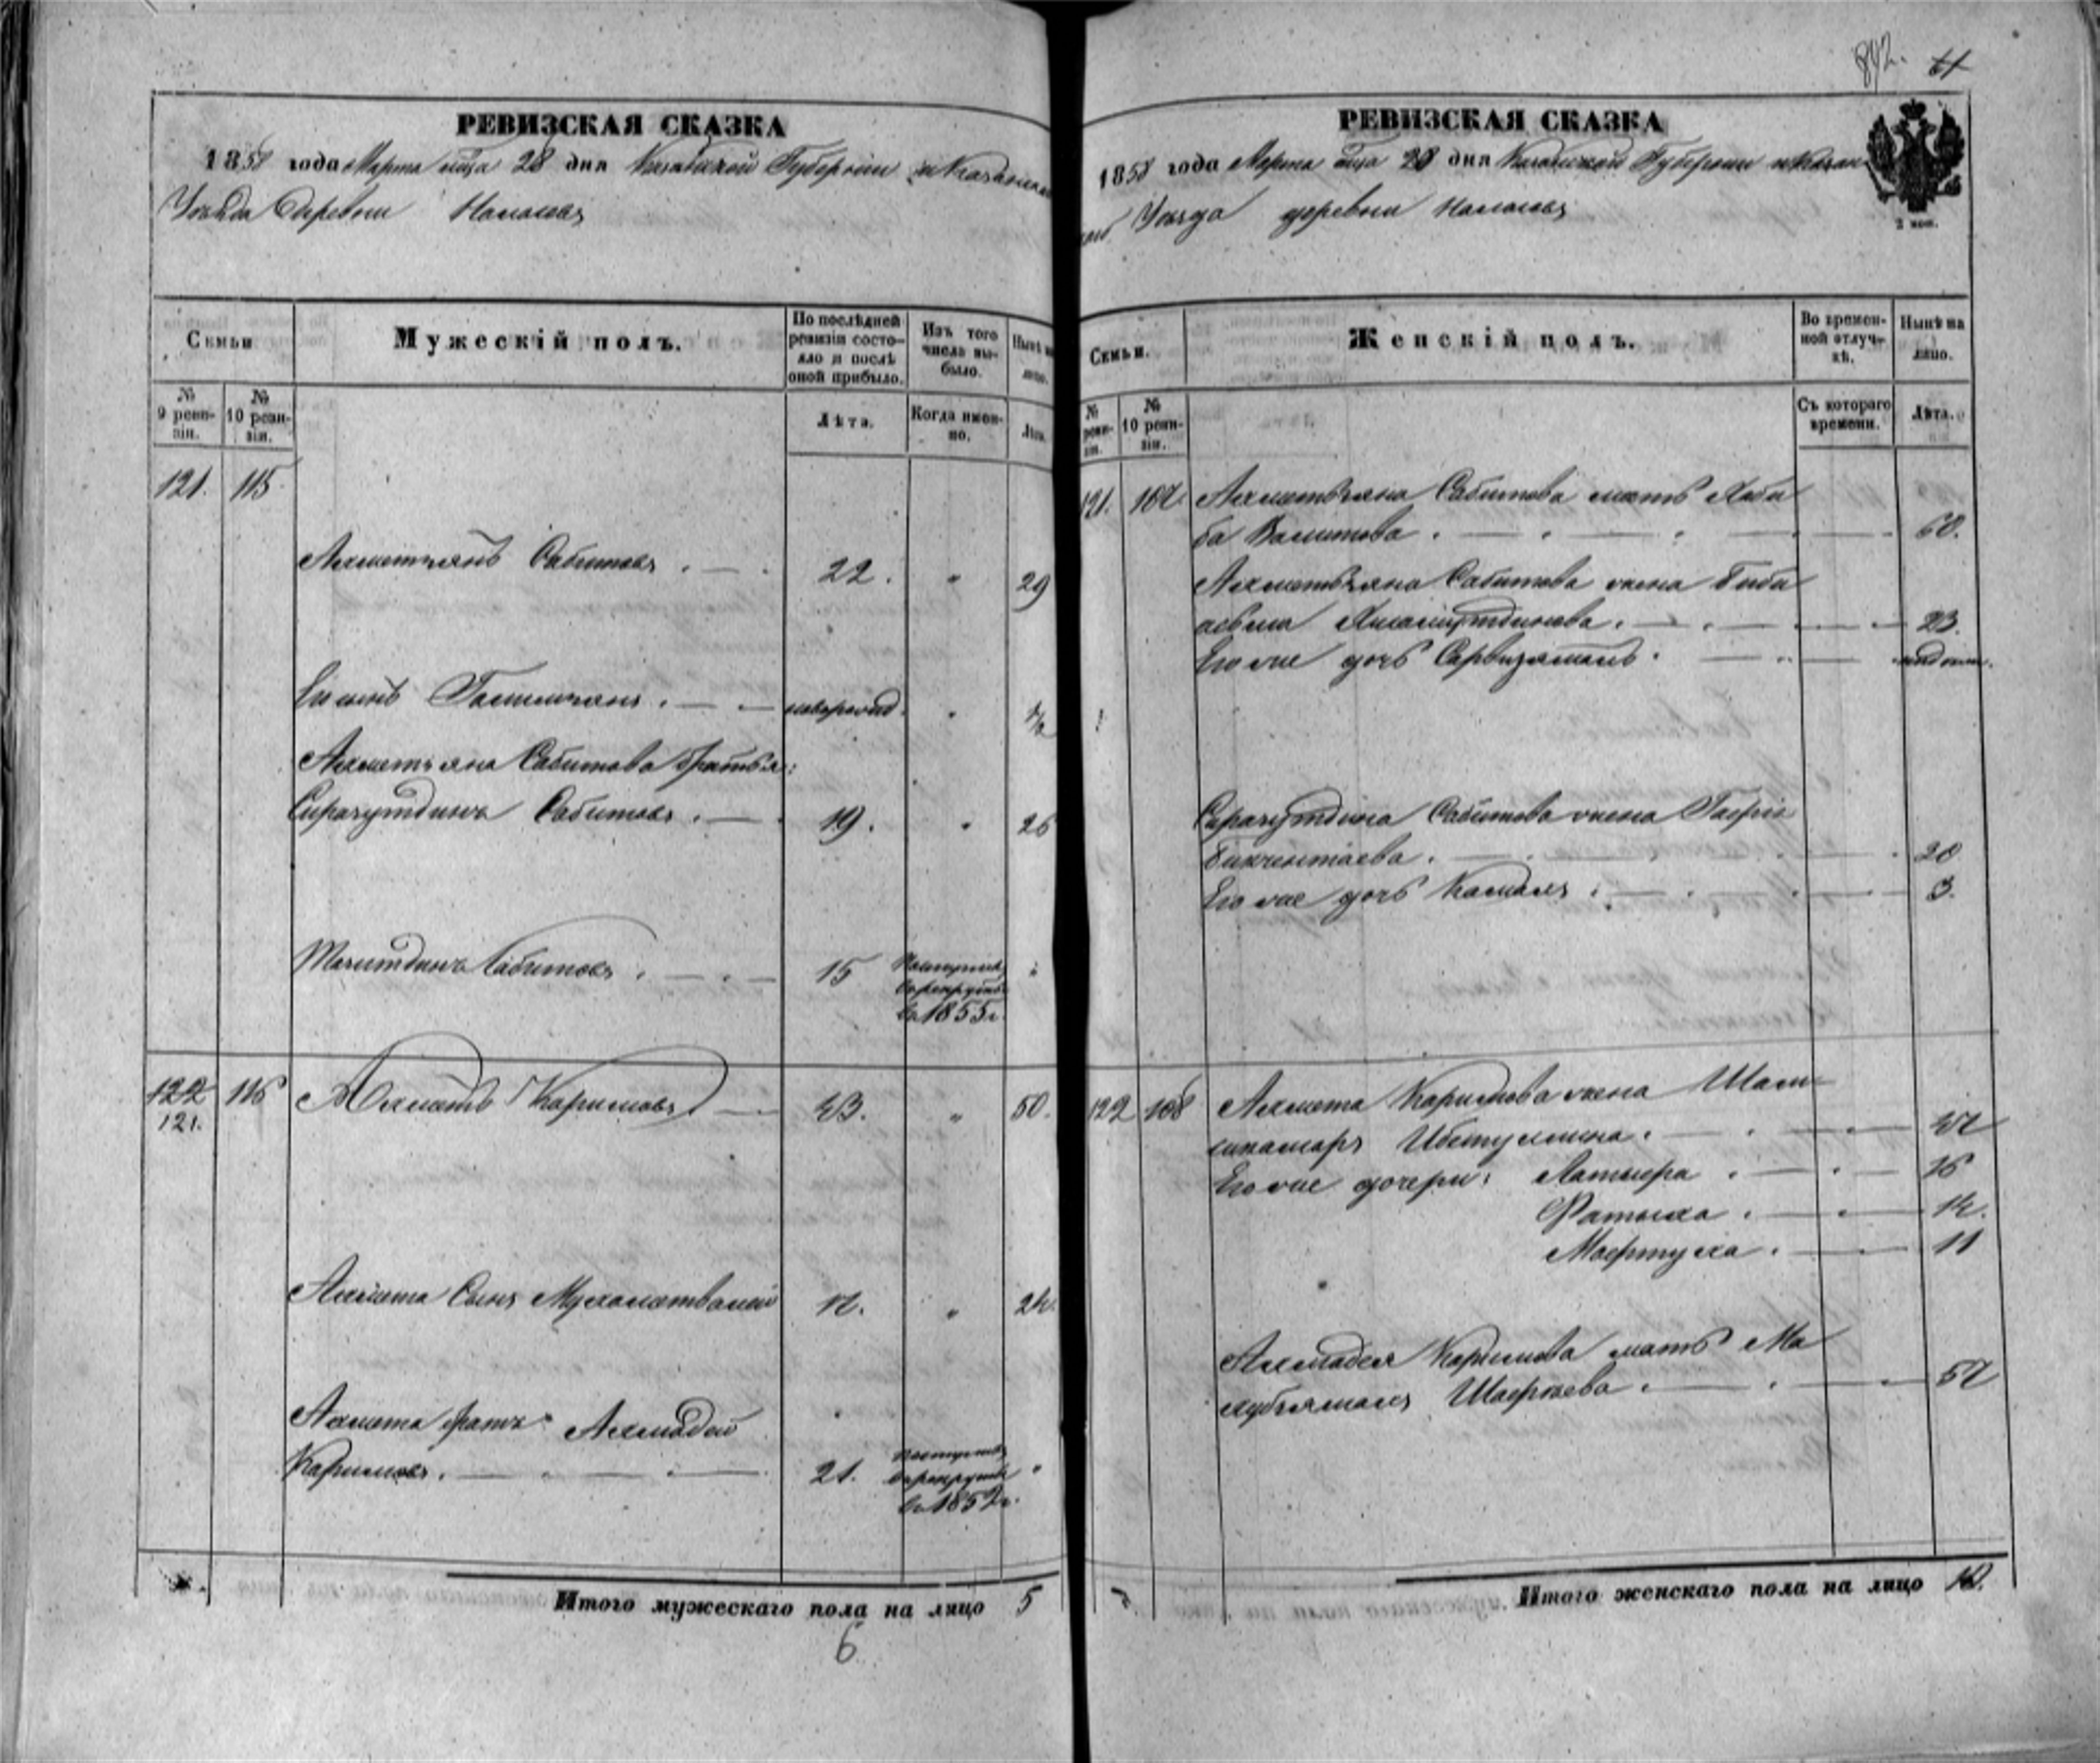 842. 41
РЕВИЗСКАЯ СКАЗКА
1858 года Марта м-ца 28 дня Казанской Губернии и Казанскаго
Уѣзда деревни
Семьи
Мужескій полъ.
По послѣдней ревизіи состояло и послѣ оной прибыло.
Изъ того числа выбыло.
Нынѣ на лицо.
№ 9 ревизіи.
№ 10 ревизіи.
Лѣта.
Когда именно.
Лѣта.
121. 115
Ахметзянъ Сабитовъ 22. " 29
Его сынъ новорожд. "
Ахметзяна Сабитова братья:
Сиразутдинъ Сабитовъ 19. " 26
Сабитовъ 15 Поступилъ
въ рекруты
въ 1855 г. "
122 116 Ахметъ Каримовъ 43. " 50.
121.
Ахмета сынъ Мухаметвалей 17. " 24.
Ахмета братъ Ахмадей
Каримовъ. 21. Поступилъ
въ рекруты "
въ 1852 г.
Итого мужескаго пола на лицо 5
6
РЕВИЗСКАЯ СКАЗКА
1858 года Марта м-ца 28 дня Казанской Губерніи и Казан
скаго Уѣзда деревни
2 коп.
Семьи.
Женскій полъ.
Во временной отлучкѣ.
Нынѣ на лицо.
№ ревизіи.
№ 10 ревизіи.
Съ котораго времени.
Лѣта.
121. 107 Ахметзяна Сабитова мать Хаби
ба Валитова 60.
Ахметзяна Сабитова жена Биби
23.
Его же дочь Сарвизямалъ
Сиразутдина Сабитова жена
Бикчентаева 20
Его же дочь Камаля 3.
122 108 Ахмета Каримова жена Шам
сикамаръ 47
Его же дочери: 16
Фатыха 14.
11
Ахмадея Каримова мать Ма
хубзямалъ 57
Итого женскаго пола на лицо 10.